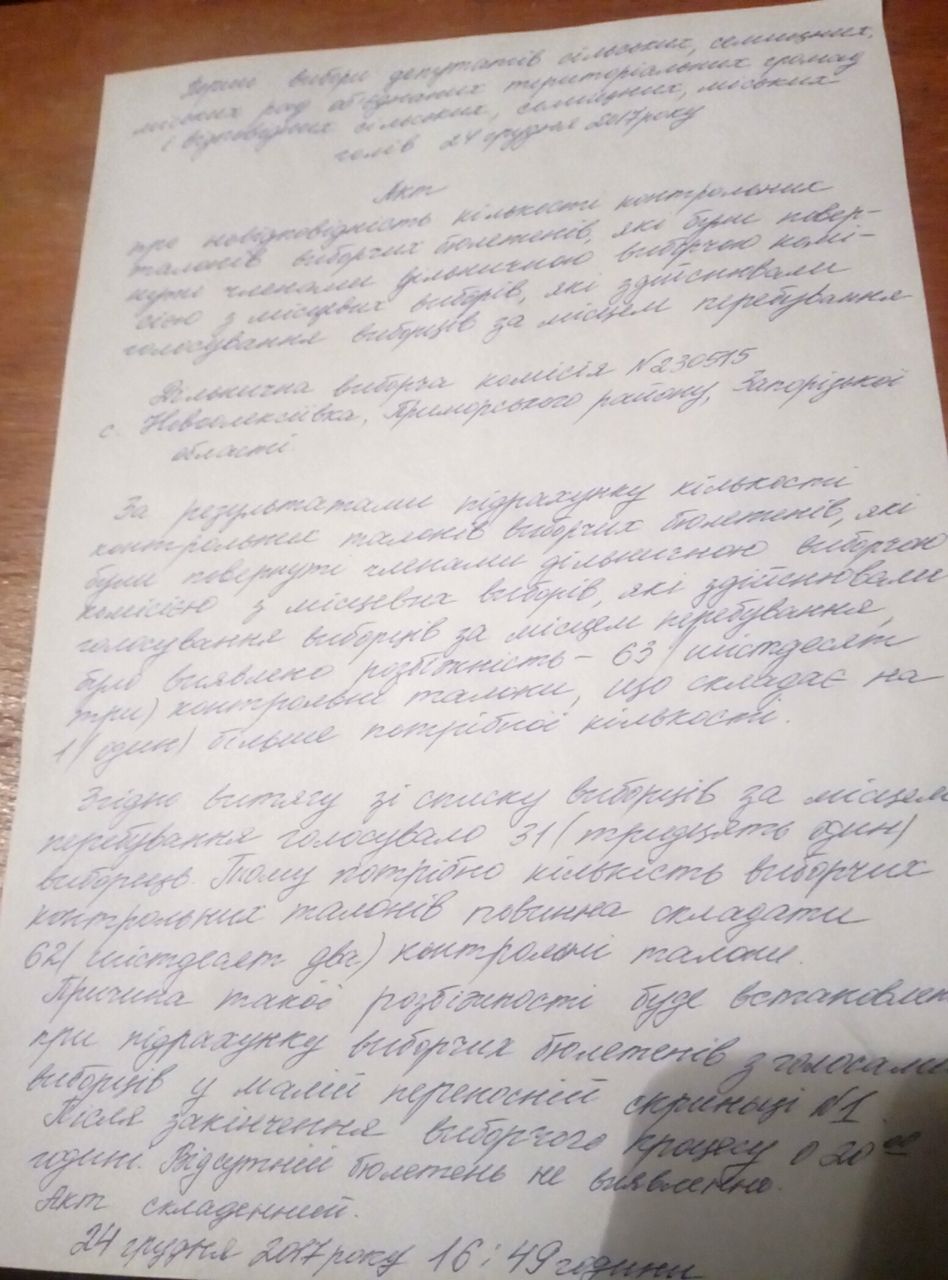 Перші вибори депутатів сільських, селищних,
міських рад об'єднаних територіальних громад
і відповідних сільських, селищних, міських
голів 24 грудня 2017 року
Акт
про невідповідність кількості контрольних
талонів виборчих бюлетенів, які були повер-
нуті членами дільничною виборчою комі-
сією з місцевих виборів, які здійснювали
голосування виборців за місцем перебування
Дільнична виборча комісія №230515
с. Новоолексіївка, Приморського району, Запорізької
області.
За результатами підрахунку кількості
контрольних талонів виборчих бюлетенів, які
були повернуті членами дільничною виборчою
комісією з місцевих виборів, які здійснювали
голосування виборців за місцем перебування,
було виявлено розбіжність – 63 (шістдесят
три) контрольні талони, що складає на
1 (один) більше потрібної кількості.
Згідно витягу зі списку виборців за місцем
перебування голосувало 31 (тридцять один)
виборець. Тому потрібно кількість виборчих
контрольних талонів повинна складати
62 (шістдесят два) контрольні талони.
Причина такої розбіжності буде встановлен
при підрахунку виборчих бюлетенів з голосами
виборців у малій переносній скриньці №1.
Після закінчення виборчого процесу о 20 00
годині. Відсутній бюлетень не виявленно.
Акт складенний.
24 грудня 2017 року 16:49 години